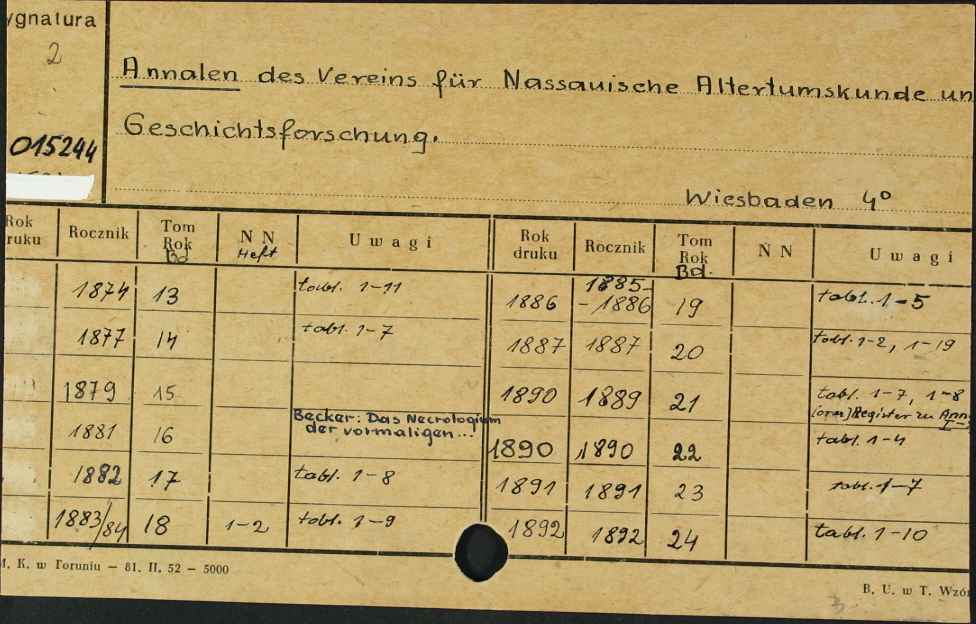 ygnatura
2
015244
Annalen des Vereins für Nassauische Altertumskunde un
Geschichtsforschung.
Wiesbaden 4°
Rok ruku Rocznik Tom Rok Bd N N Heft Uwagi Rok druku Rocznik Tom Rok Bd. N N Uwagi
1874 13 tabl. 1-11 1886 1885-1886 19 tabl. 1-5
1877 14 tabl. 1-7 1887 1887 20 tabl. 1-2, 1-19
1879 15 1890 1889 21 tabl. 1-7, 1-8
(oraz) Register zu Ann
1881 16 Becker: Das Necrologium der vormaligen... 1890 1890 22 tabl. 1-4
1882 17 tabl. 1-8 1891 1891 23 tabl. 1-7
1883/84 18 1-2 tabl. 1-9 1892 1892 24 tabl. 1-10
M. K. w Toruniu — 81. II. 52 — 5000
B. U. w T. Wzór